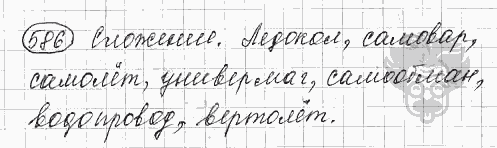 586 Сложение. Ледокол, самовар,
самолёт, универмаг, самообман,
водопровод, вертолёт.